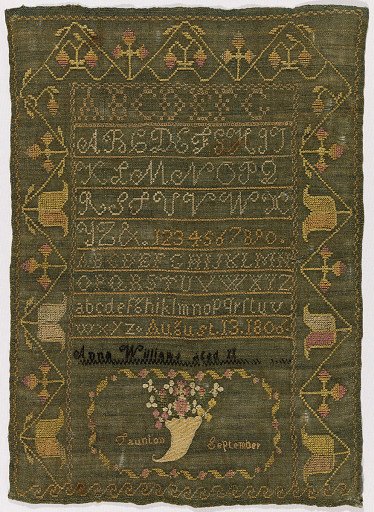 ABCDEFG
ABCDEFGHIJ
KLMNOPQ
RSTUVWX
YZ&.1234567890.
ABCDEFGHIJKLMN
OPQRSTUVWXYZ
abcdefghiklmnopqrstuv
wxyz. August.13.180
Anna Williams aged 11
Taunton September